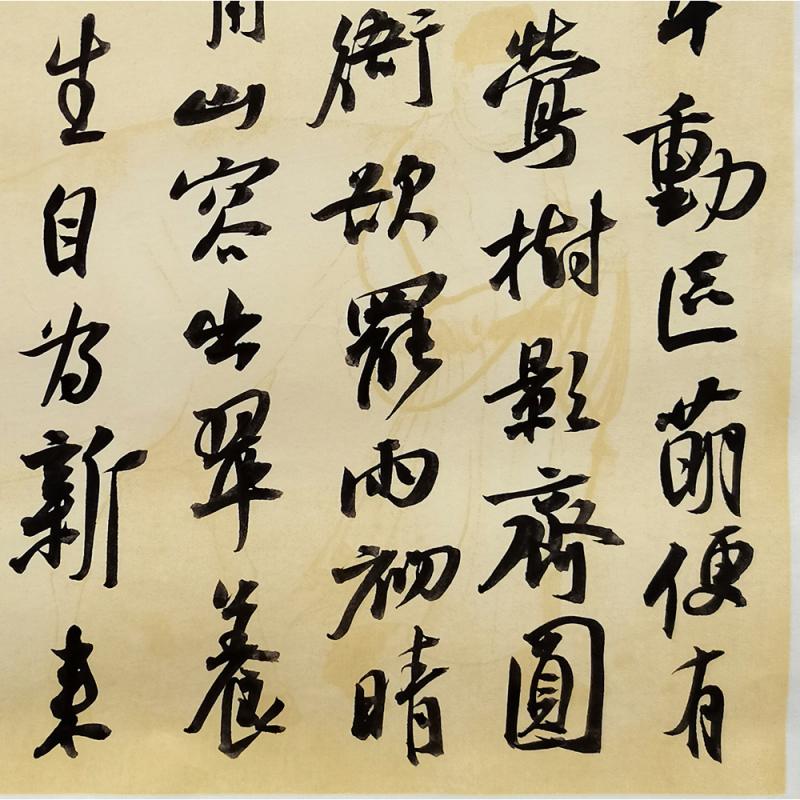 動區萌便有
鶯樹影齊圓
衙欲罷雨初晴
山容出翠養
生自為新来